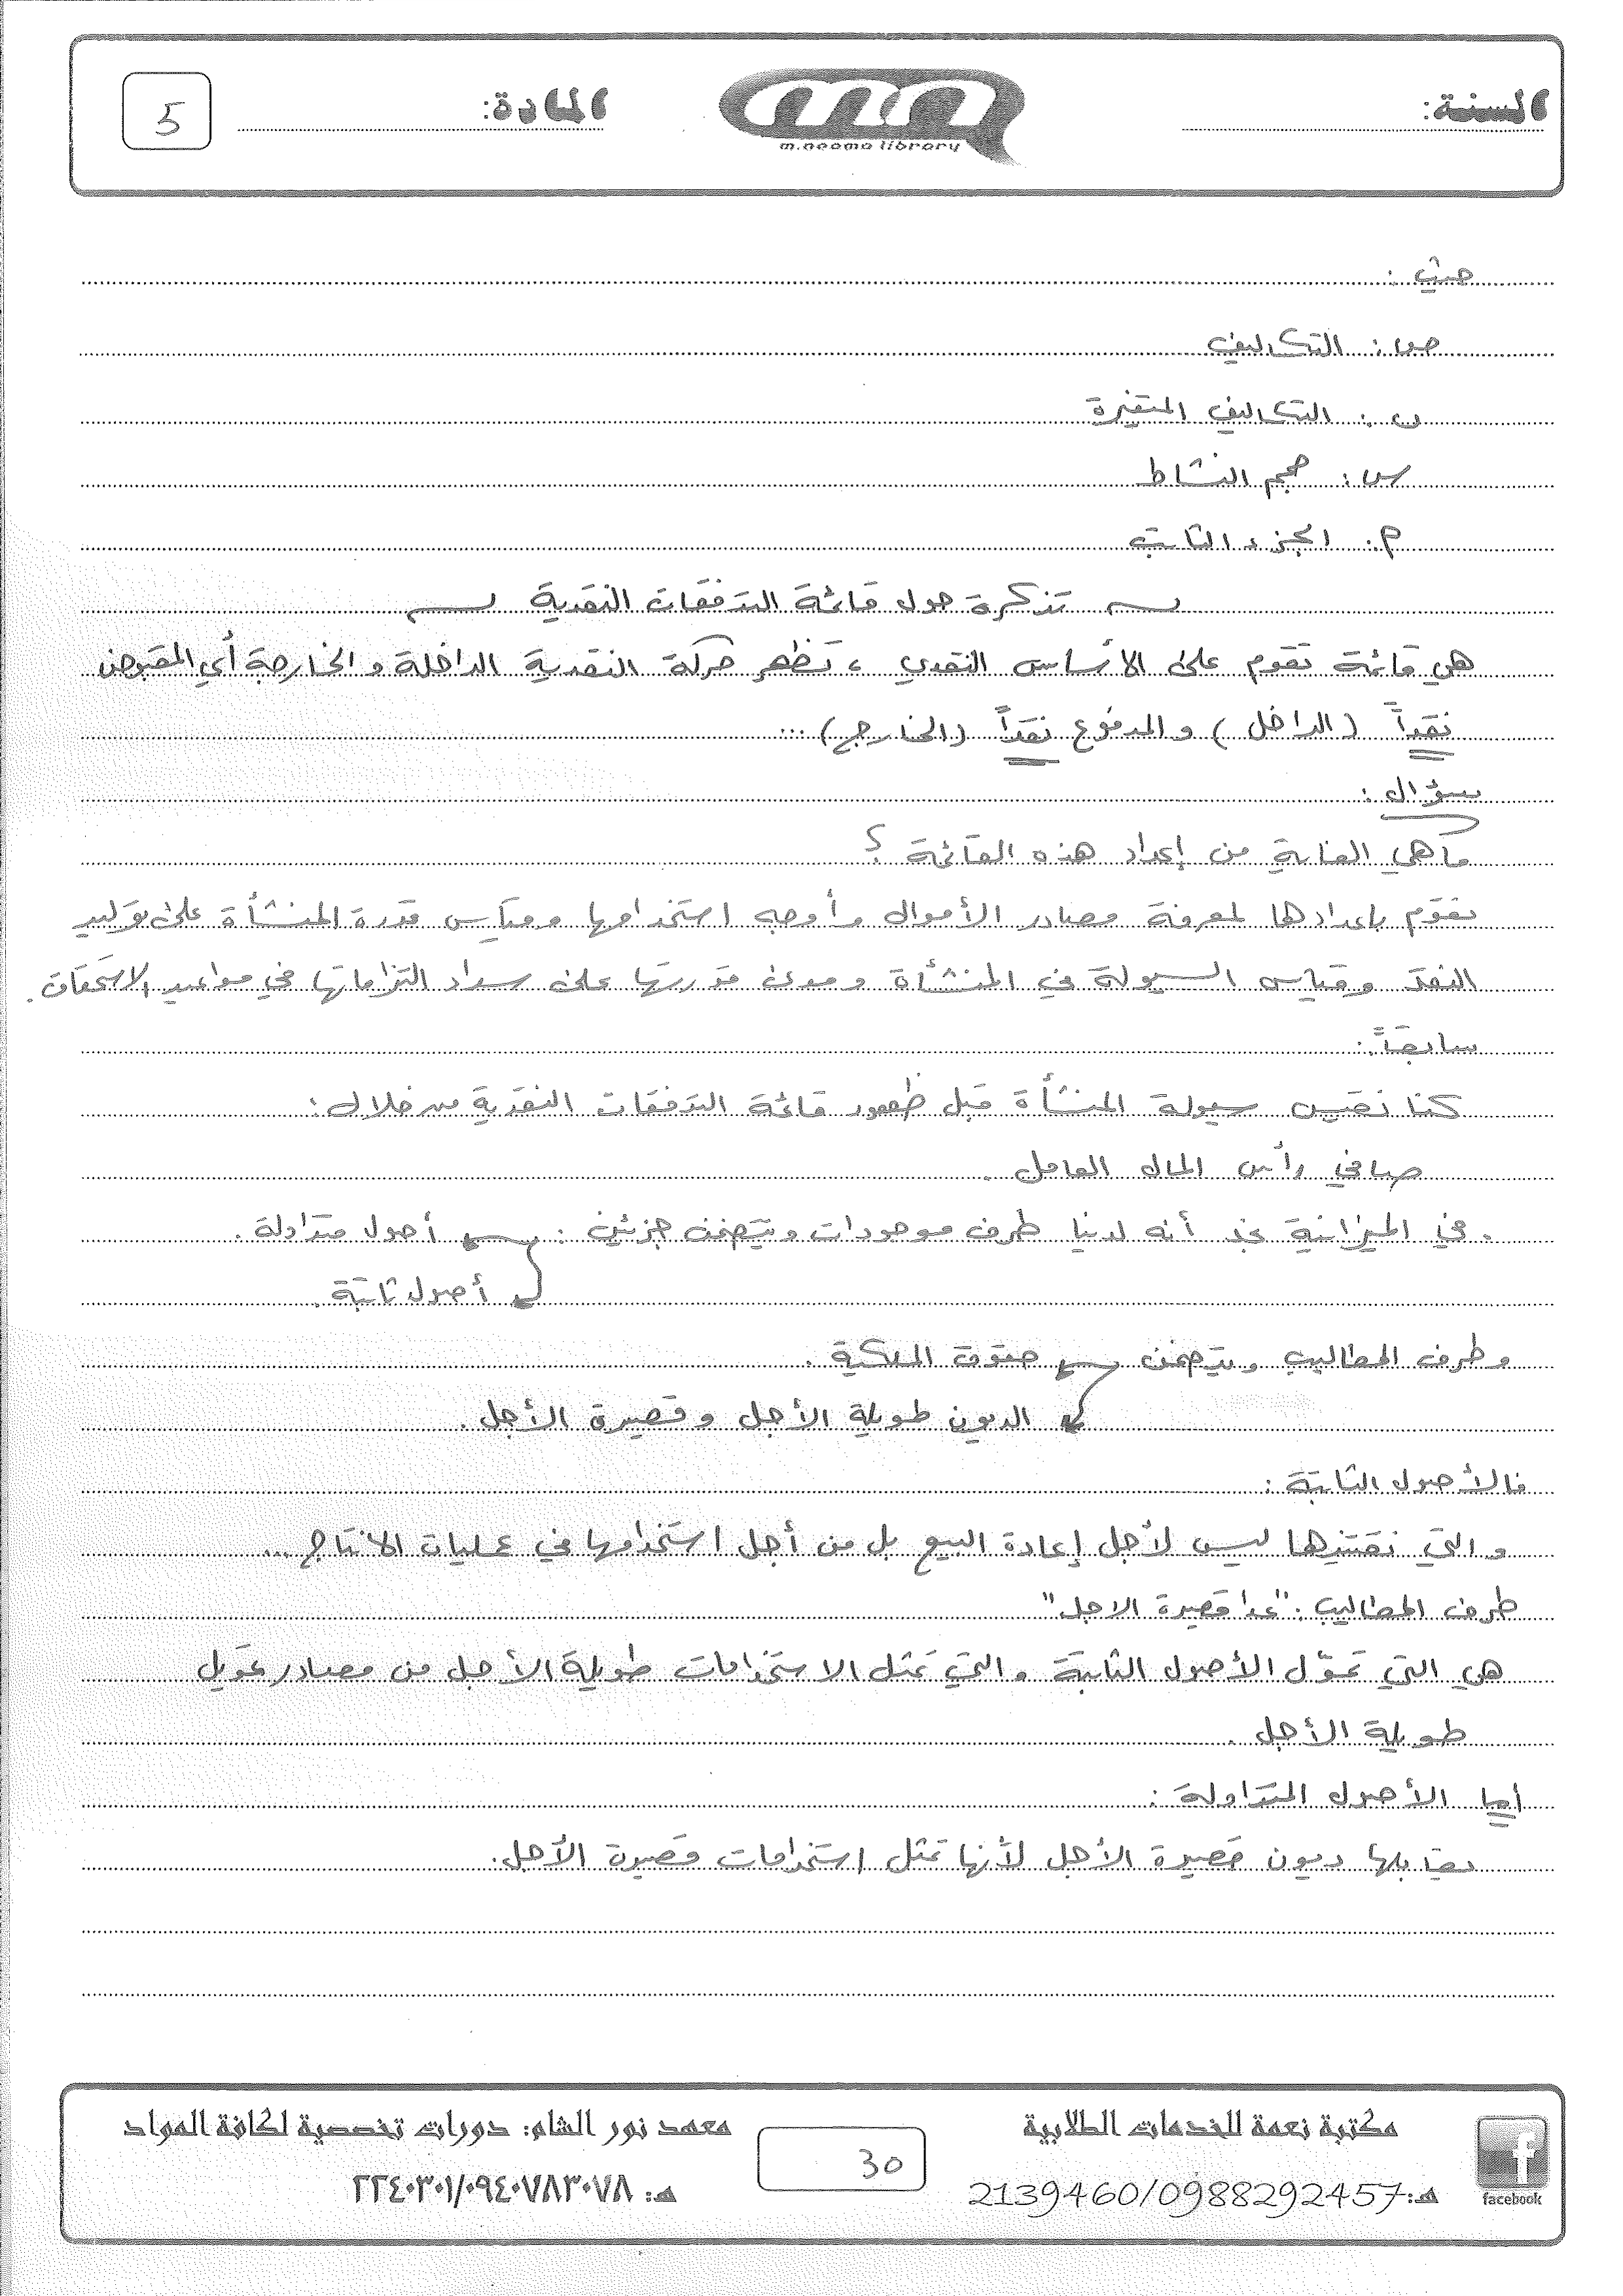 السنة:
m.neama library
المادة:
5
حيث:
ص: التكاليف
ن: التكاليف المتغيرة
س: حجم النشاط
م: الجزء الثابت
تذكرة حول قائمة التدفقات النقدية
هي قائمة تقوم على الأساس النقدي، تظهر حركة النقدية الداخلة والخارجة أي المقبوض
نقداً (الداخل) والمدفوع نقداً (الخارج)...
سؤال:
ما هي الغاية من إعداد هذه القائمة؟
نقوم بإعدادها لمعرفة مصادر الأموال وأوجه استخدامها وقياس قدرة المنشأة على توليد
النقد وقياس السيولة في المنشأة ومدى قدرتها على سداد التزاماتها في مواعيد الاستحقاق.
سابقاً:
كنا نقيس سيولة المنشأة قبل ظهور قائمة التدفقات النقدية من خلال:
صافي رأس المال العامل.
. في الميزانية نجد أنه لدينا طرف موجودات ويتضمن جزئين: أصول متداولة.
أصول ثابتة.
وطرف المطاليب ويتضمن حقوق الملكية.
الديون طويلة الأجل وقصيرة الأجل.
فالأصول الثابتة:
والتي نقتنيها ليس لأجل إعادة البيع بل من أجل استخدامها في عمليات الانتاج...
طرف المطاليب: "عدا قصيرة الاجل"
هي التي تموّل الأصول الثابتة والتي تمثل الاستخدامات طويلة الأجل من مصادر تمويل
طويلة الأجل.
أما الأصول المتداولة:
يقابلها ديون قصيرة الأجل لأنها تمثل استخدامات قصيرة الأجل.
مكتبة نعمة للخدمات الطلابية
هـ: 2139460/0988292457
facebook
30
معهد نور الشام: دورات تخصصية لكافة المواد
هـ: ٢٢٤٠٣٠١/٠٩٤٠٧٨٣٠٧٨